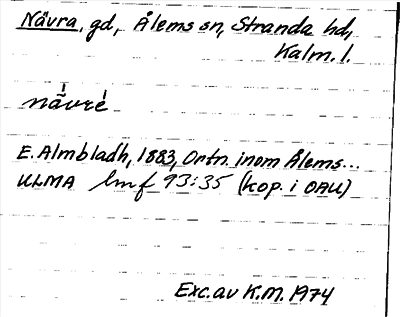 Nävra, gd, Ålems sn, Stranda hd,
Kalm. l.
nävrè
E. Almbladh, 1883, Ortn. inom Ålems...
ULMA lmf 93:35 (kop. i OAU)
Exc. av K.M. 1974